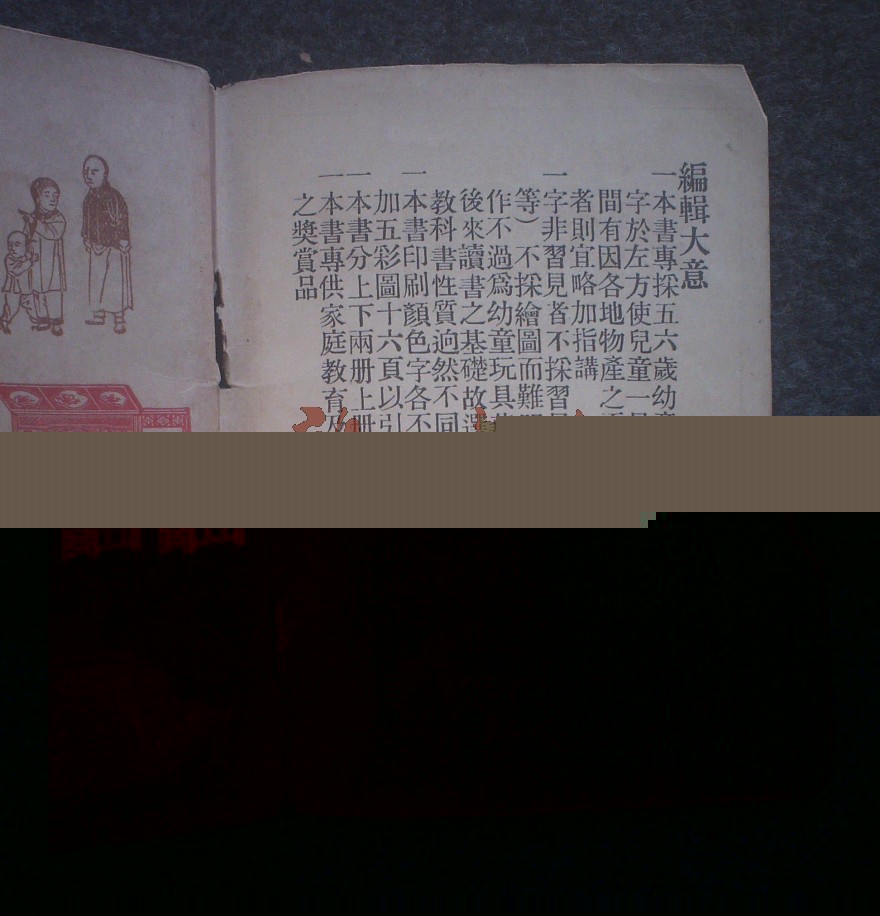 編輯大意
一本書專採五六歲幼
字於左方使兒童一
間有因各地物產之
者則宜略加指講
一字非習見者不採習
等）不採繪圖而難
作不過爲幼童玩具
後來讀書之基礎故
教科書性質迥然不同
一本書印刷顏色字各不
加五彩圖十六頁以引
一本書分上下兩册上册
一本書專供家庭教育及
之獎賞品